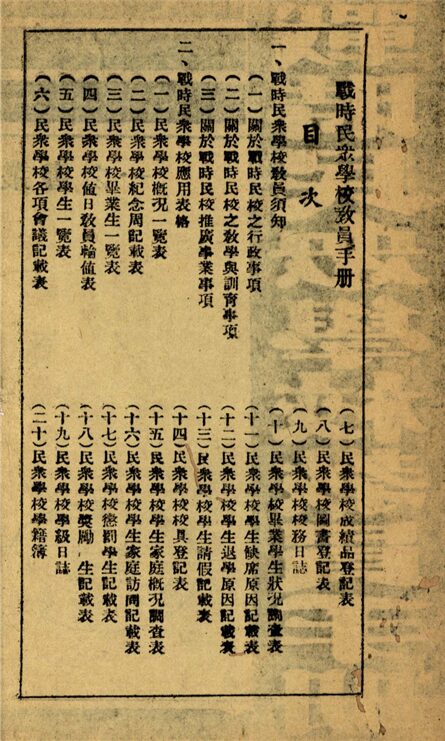 戰時民眾學校敎員手册
目次
一、戰時民眾學校敎員須知
（一）關於戰時民校之行政事項
（二）關於戰時民校之敎學與訓育事項
（三）關於戰時民校推廣事業事項
二、戰時民眾學校應用表格
（一）民眾學校概况一覽表
（二）民眾學校紀念周記載表
（三）民眾學校畢業生一覽表
（四）民眾學校値日敎員輪値表
（五）民眾學校學生一覽表
（六）民眾學校各項會議記載表
（七）民眾學校成績品登記表
（八）民眾學校圖書登記表
（九）民眾學校校務日誌
（十）民眾學校畢業學生狀况調查表
（十一）民眾學校學生缺席原因記載表
（十二）民眾學校學生退學原因記載表
（十三）民眾學校學生請假記載表
（十四）民眾學校校具登記表
（十五）民眾學校學生家庭概况調查表
（十六）民眾學校學生家庭訪問記載表
（十七）民眾學校懲罰學生記載表
（十八）民眾學校獎勵 生記載表
（十九）民眾學校學級日誌
（二十）民眾學校學籍簿